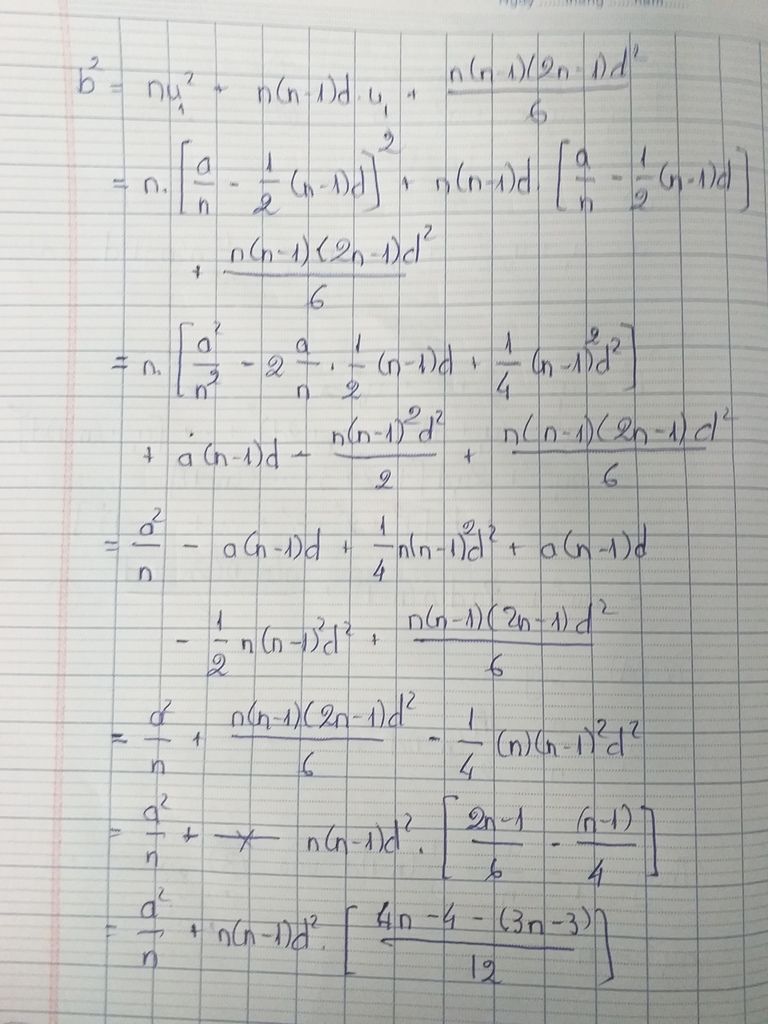 Ngày ......tháng ......năm......
b² = nu₁² + n(n-1)d.u₁ + n(n-1)(2n-1)d²/6
= n.[a/n - 1/2 (n-1)d]² + n(n-1)d.[a/n - 1/2 (n-1)d]
+ n(n-1)(2n-1)d²/6
= n.[a²/n² - 2 a/n . 1/2 (n-1)d + 1/4 (n-1)²d²]
+ a(n-1)d - n(n-1)²d²/2 + n(n-1)(2n-1)d²/6
= a²/n - a(n-1)d + 1/4 n(n-1)²d² + a(n-1)d
- 1/2 n(n-1)²d² + n(n-1)(2n-1)d²/6
= a²/n + n(n-1)(2n-1)d²/6 - 1/4 (n)(n-1)²d²
= a²/n + n(n-1)d².[2n-1/6 - (n-1)/4]
= a²/n + n(n-1)d².[4n-4-(3n-3)/12]